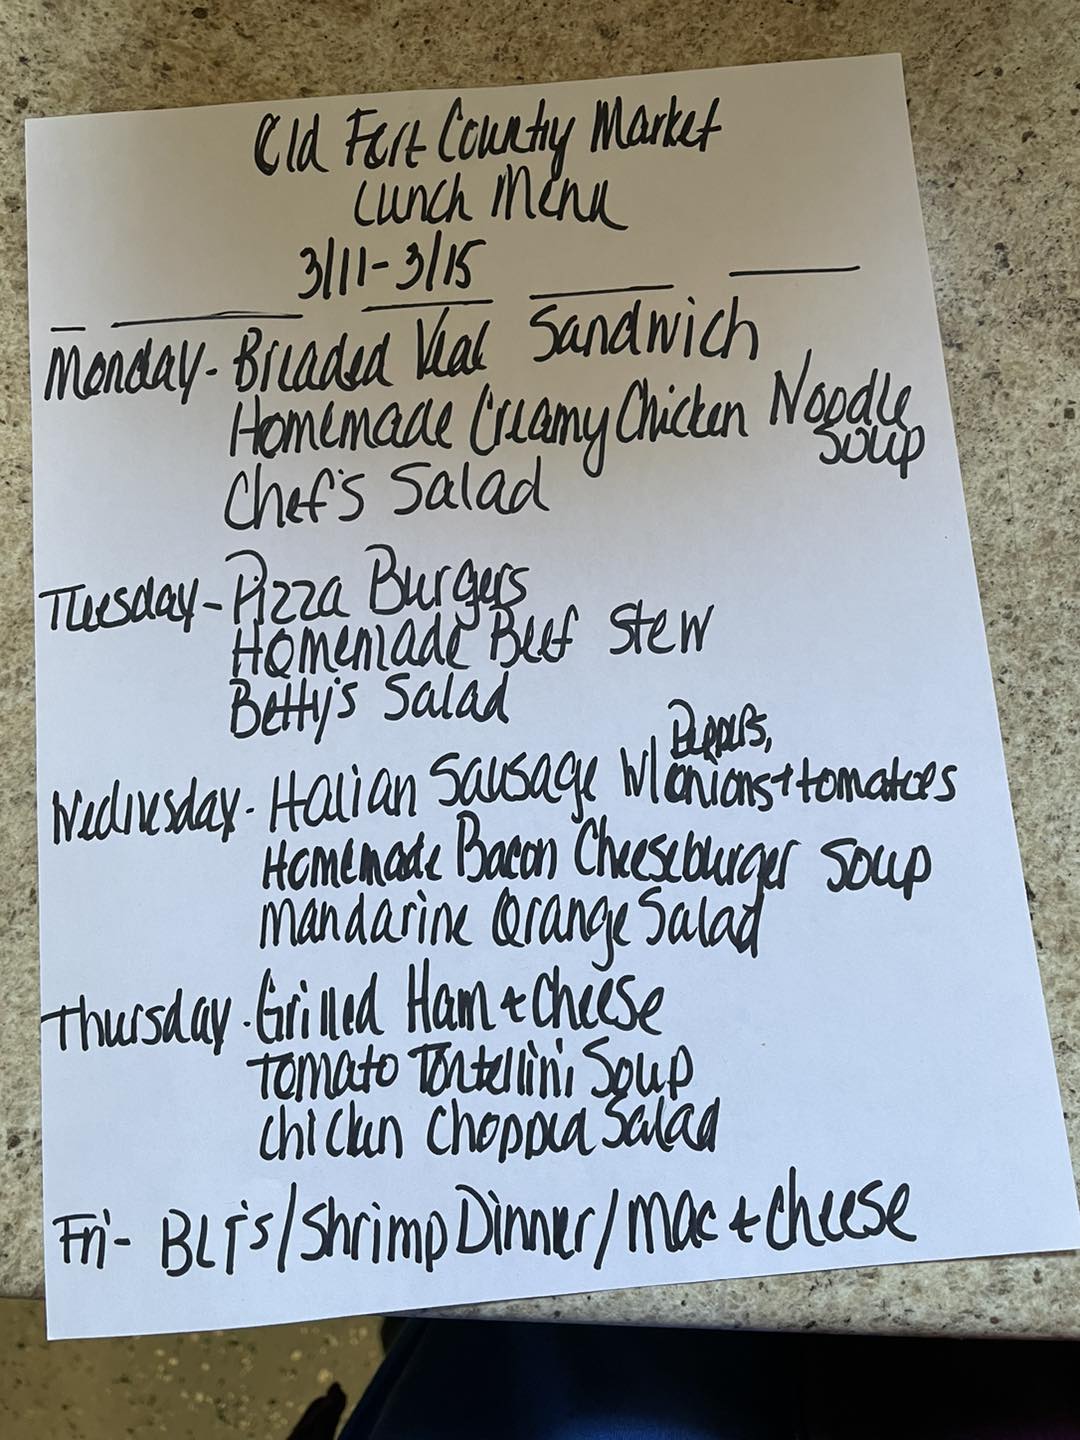 Old Fort Country Market
Lunch Menu
3/11-3/15
Monday - Breaded Veal Sandwich
Homemade Creamy Chicken Noodle
Soup
Chef's Salad
Tuesday - Pizza Burgers
Homemade Beef Stew
Betty's Salad
Peppers,
Wednesday - Italian Sausage W/onions + tomatoes
Homemade Bacon Cheeseburger Soup
Mandarine Orange Salad
Thursday - Grilled Ham + Cheese
Tomato Tortellini Soup
Chicken Chopped Salad
Fri - BLT's/Shrimp Dinner/Mac + Cheese